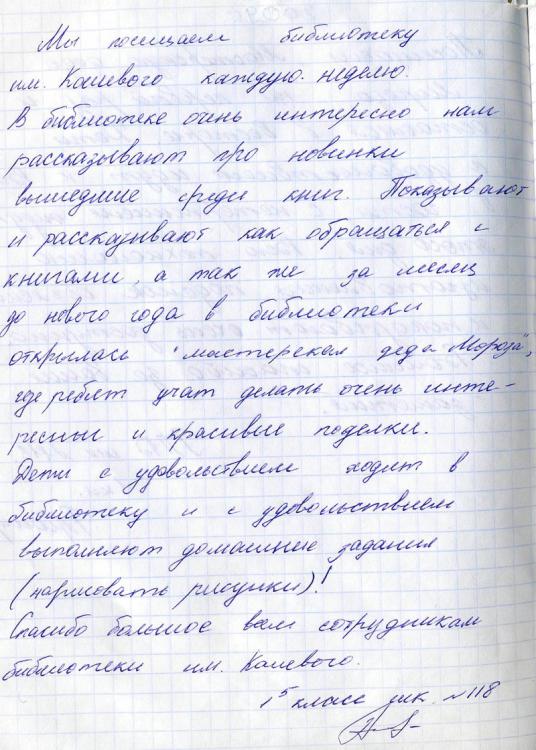 Мы посещаем библиотеку
им. Кашевого каждую неделю.
В библиотеке очень интересно нам
рассказывают про новинки
вышедшие среди книг. Показывают
и рассказывают как обращаться с
книгами, а так же за месяц
до нового года в библиотеки
открылась "мастерская деда Мороза",
где ребят учат делать очень инте-
ресные и красивые поделки.
Дети с удовольствием ходят в
библиотеку и с удовольствием
выполняют домашние задания
(нарисовать рисунки)!
Спасибо большое вам сотрудникам
библиотеки им. Кашевого.
1 класс шк. №118